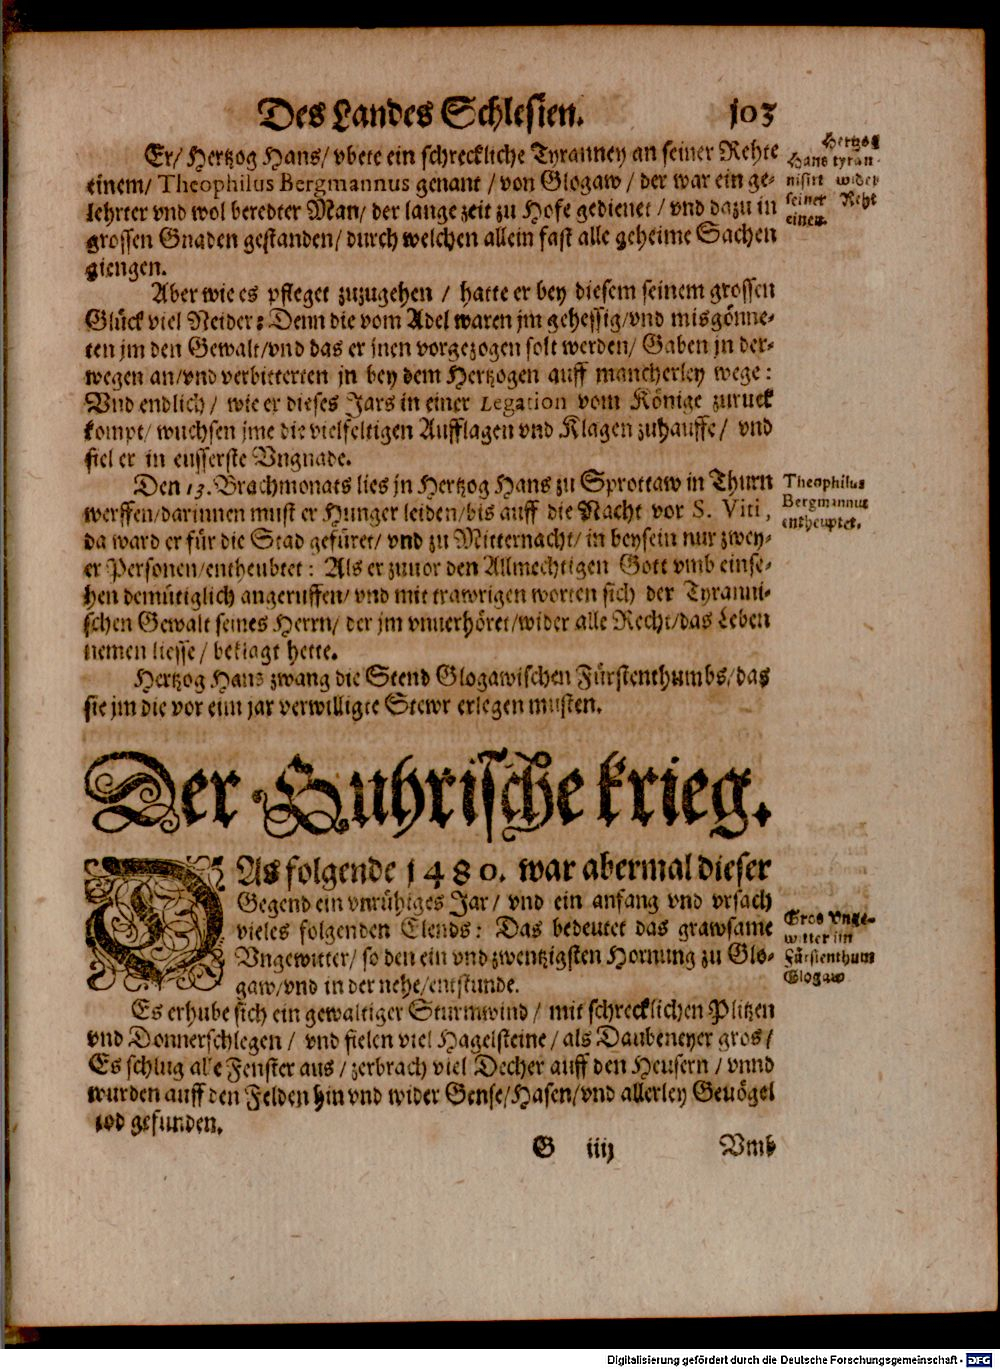 Des Landes Schlesien. 103
Er/ Hertzog Hans/ vbete ein schreckliche Tyranney an seiner Rehte
einem/ Theophilus Bergmannus genant / von Glogaw / der war ein ge-
lehrter vnd wol beredter Man/ der lange zeit zu Hofe gedienet / vnd dazu in
grossen Gnaden gestanden/ durch welchen allein fast alle geheime Sachen
giengen.
Hertzog
Hans tyran-
nisirt wider
seiner Reht
einen.
Aber wie es pfleget zuzugehen / hatte er bey diesem seinem grossen
Glück viel Neider: Denn die vom Adel waren jm gehessig/vnd misgönne-
ten jm den Gewalt/vnd das er jnen vorgezogen solt werden/ Gaben jn der-
wegen an/vnd verbitterten jn bey dem Hertzogen auff mancherley wege:
Vnd endlich / wie er dieses Jars in einer Legation vom Könige zuruck
kompt/ wuchsen jme die vielfeltigen Aufflagen vnd Klagen zuhauffe/ vnd
fiel er in eusserste Vngnade.
Den 13. Brachmonats lies jn Hertzog Hans zu Sprottaw in Thurn
werffen/darinnen must er Hunger leiden/bis auff die Nacht vor S. Viti,
da ward er für die Stad gefüret/ vnd zu Mitternacht/ in beysein nur zwey-
er Personen/entheubtet: Als er zuuor den Allmechtigen Gott vmb einse-
hen demütiglich angeruffen/ vnd mit trawrigen worten sich der Tyranni-
schen Gewalt seines Herrn/ der jm vnuerhöret/wider alle Recht/das Leben
nemen liesse / beklagt hette.
Theophilus
Bergmannus
entheuptet.
Hertzog Hans zwang die Stend Glogawischen Fürstenthumbs/das
sie jm die vor eim jar verwilligte Stewr erlegen musten.
Der Guhrische krieg.
DAs folgende 1480. war abermal dieser
Gegend ein vnrühiges Jar/ vnd ein anfang vnd vrsach
vieles folgenden Elends: Das bedeutet das grawsame
Vngewitter/ so den ein vnd zwentzigsten Hornung zu Glo-
gaw/vnd in der nehe/entstunde.
Gros Vnge-
witter im
Fürstenthum
Glogaw
Es erhube sich ein gewaltiger Sturmwind / mit schrecklichen Plitzen
vnd Donnerschlegen / vnd fielen viel Hagelsteine / als Daubeneyer gros /
Es schlug alle Fenster aus / zerbrach viel Decher auff den Heusern / vnnd
wurden auff den Felden hin vnd wider Gense/Hasen/vnd allerley Geuögel
tod gefunden.
G iiij Vmb
Digitalisierung gefördert durch die Deutsche Forschungsgemeinschaft - DFG